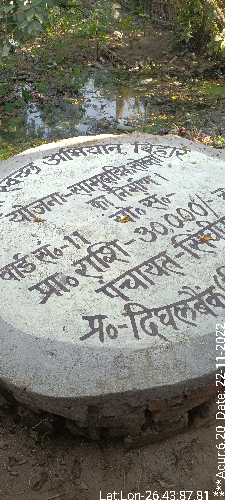 स्वच्छ अभियान बिहार
योजना-सामुदायिक सोख्ता
का निर्माण।
यो० सं०-
वार्ड सं०-11
प्रा० राशि-30.000/
पंचायत-
प्र०-दिघलबैंक
***Acur:6.20 Date: 22-11-2022
Lat:Lon-26.43:87.81